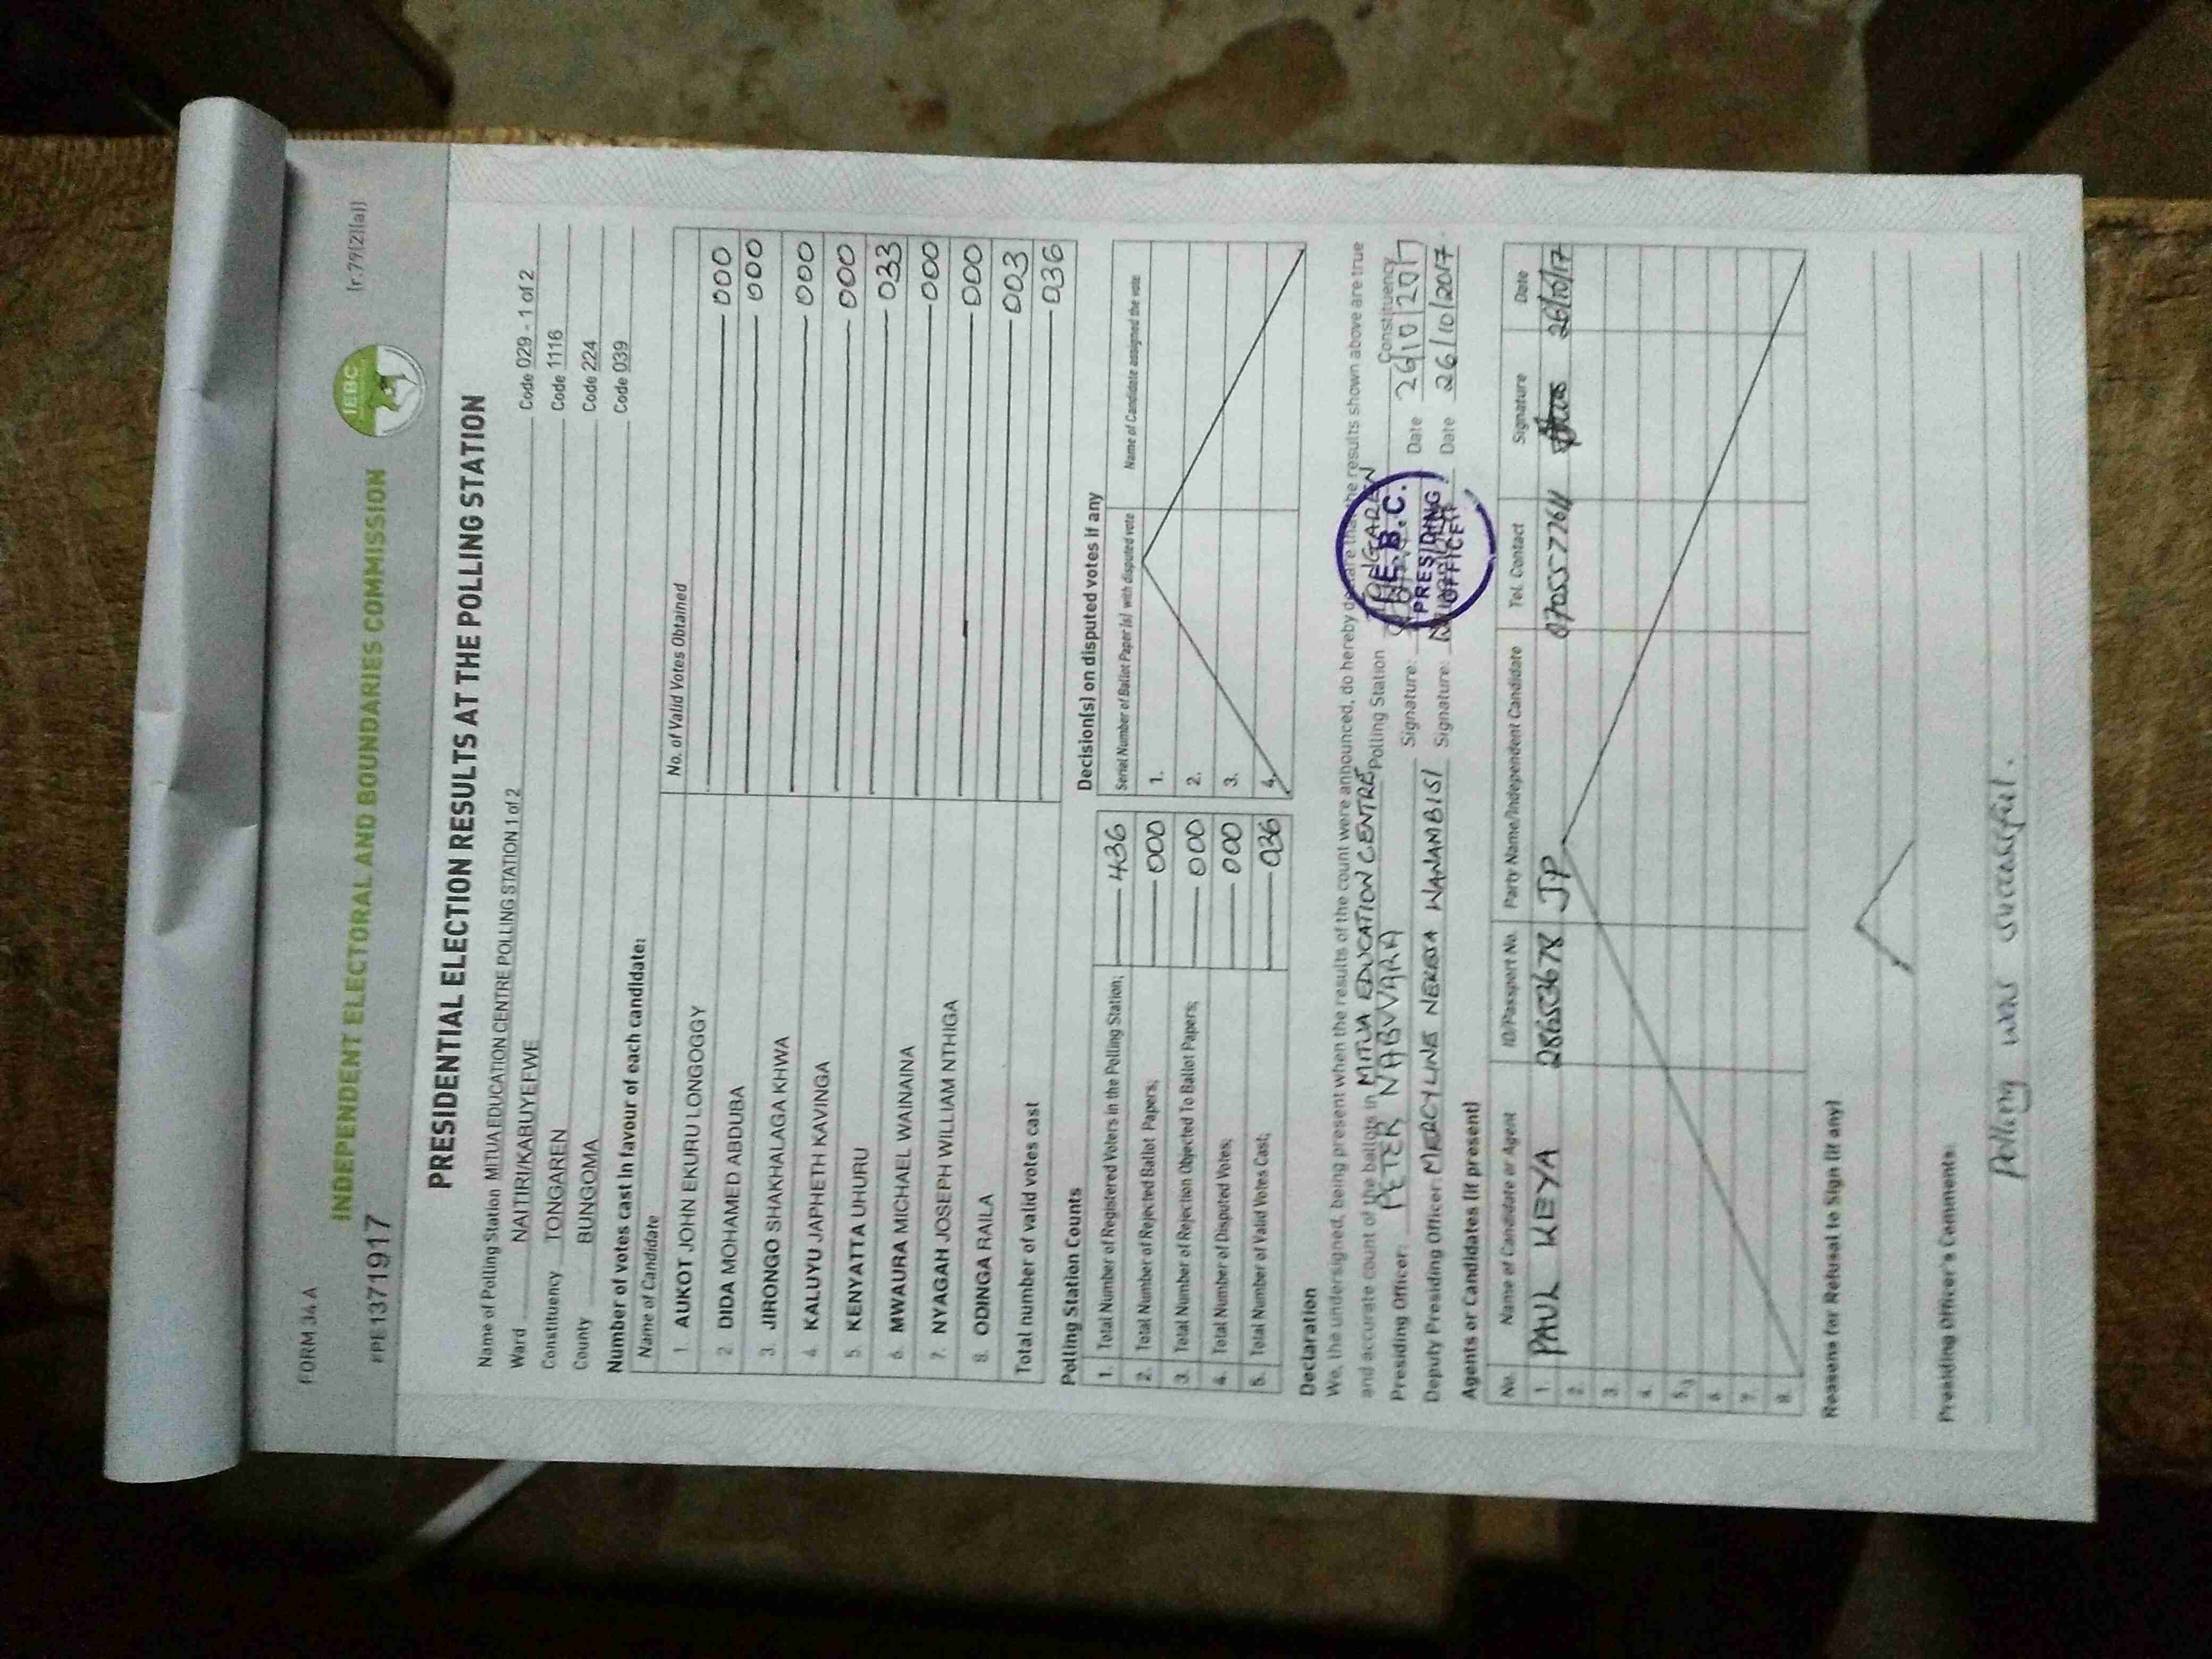 FORM 34 A
(r.79(2)(a))
INDEPENDENT ELECTORAL AND BOUNDARIES COMMISSION
IEBC
#PE1371917
PRESIDENTIAL ELECTION RESULTS AT THE POLLING STATION
Name of Polling Station MITUA EDUCATION CENTRE POLLING STATION 1 of 2 Code 029 - 1 of 2
Ward NAITIRI/KABUYEFWE Code 1116
Constituency TONGAREN Code 224
County BUNGOMA Code 039
Number of votes cast in favour of each candidate:
Name of Candidate No. of Valid Votes Obtained
1. AUKOT JOHN EKURU LONGOGGY 000
2. DIDA MOHAMED ABDUBA 000
3. JIRONGO SHAKHALAGA KHWA 000
4. KALUYU JAPHETH KAVINGA 000
5. KENYATTA UHURU 033
6. MWAURA MICHAEL WAINAINA 000
7. NYAGAH JOSEPH WILLIAM NTHIGA 000
8. ODINGA RAILA 003
Total number of valid votes cast 036
Polling Station Counts
1. Total Number of Registered Voters in the Polling Station; 436
2. Total Number of Rejected Ballot Papers; 000
3. Total Number of Rejection Objected To Ballot Papers; 000
4. Total Number of Disputed Votes; 000
5. Total Number of Valid Votes Cast; 036
Decision(s) on disputed votes if any
Serial Number of Ballot Paper (s) with disputed vote Name of Candidate assigned the vote
1.
2.
3.
4.
Declaration
We, the undersigned, being present when the results of the count were announced, do hereby declare that the results shown above are true
and accurate count of the ballots in MITUA EDUCATION CENTRE Polling Station TONGAREN Constituency
Presiding Officer: PETER NABVVARA Signature: Date 26/10/2017
Deputy Presiding Officer: MERCYLINE NEKESA WANAMBISI Signature: Date 26/10/2017.
I.E.B.C.
PRESIDING
OFFICER
Agents or Candidates (if present)
No. Name of Candidate or Agent ID/Passport No. Party Name/Independent Candidate Tel. Contact Signature Date
1. PAUL KEYA 28653678 JP 0705577611 26/10/17
2.
3.
4.
5.
6.
7.
8.
Reasons for Refusal to Sign (if any)
Presiding Officer's Comments:
Polling was successful.